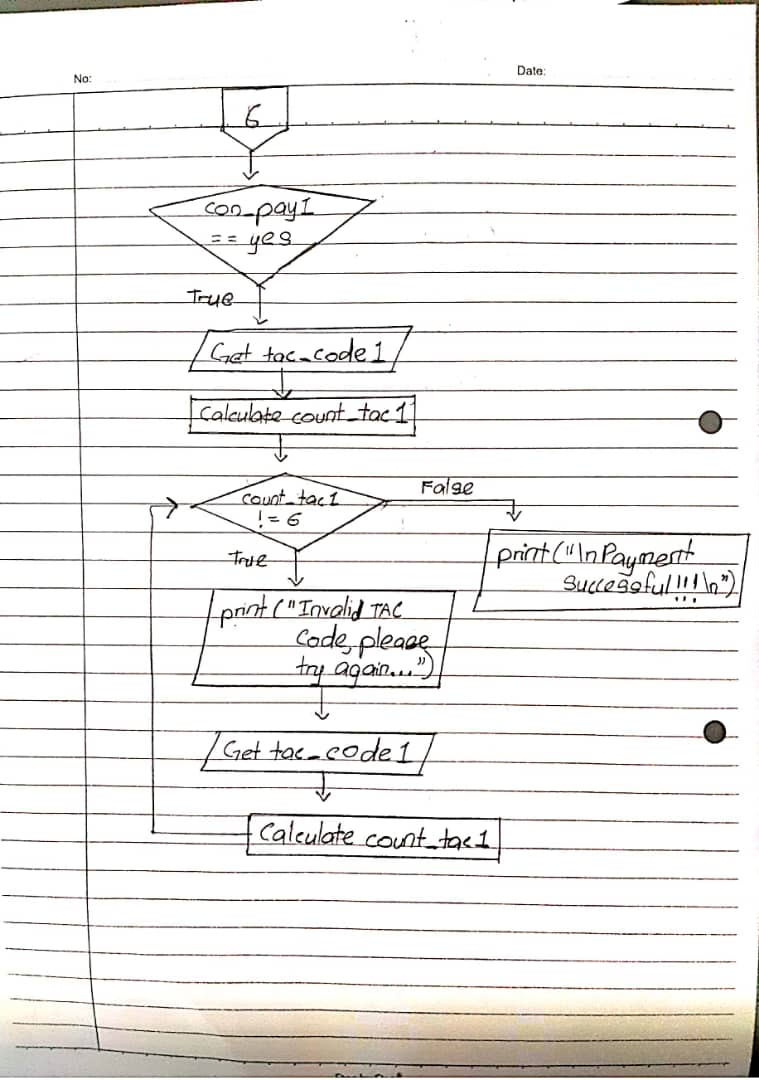 No:
Date:
6
con_pay1
== yes
True
Get tac_code1
Calculate count_tac1
count_tac1
!= 6
False
True
print("\nPayment
Successful!!!\n")
print("Invalid TAC
Code, please
try again...")
Get tac_code1
Calculate count_tac1